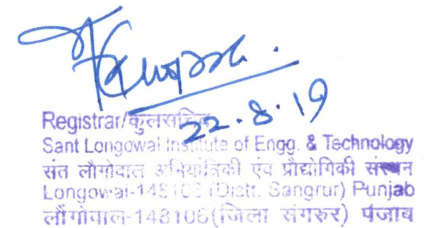 22.8.19
Registrar/कुलसचिव
Sant Longowal Institute of Engg. & Technology
संत लौंगोवाल अभियांत्रिकी एंव प्रौद्योगिकी संस्थान
Longowal-148106 (Distt. Sangrur) Punjab
लौंगोवाल-148106(जिला संगरुर) पंजाब